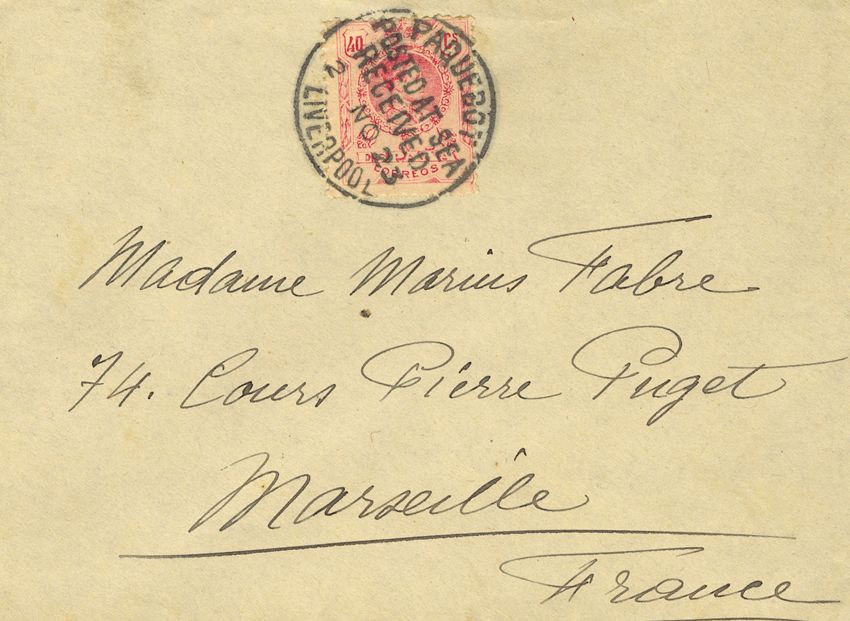 40
PAQUEBOT
POSTED AT SEA
RECEIVED
2 NO 23
LIVERPOOL
CORREOS
Madame Marius Fabre
74. Cours Pierre Puget
Marseille
France